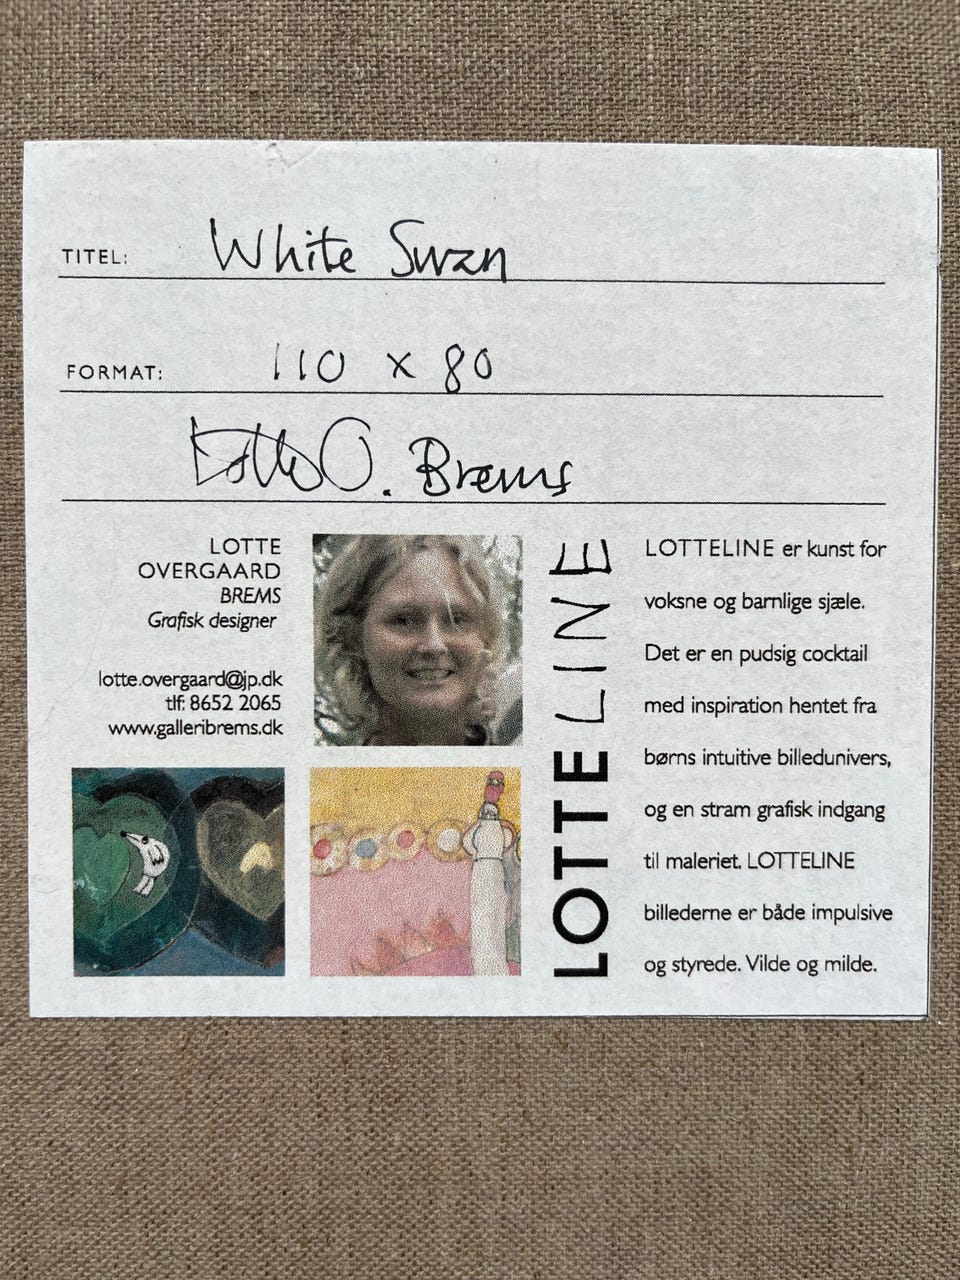 TITEL: White Swan
FORMAT: 110 x 80
Lotte O. Brems
LOTTE
OVERGAARD
BREMS
Grafisk designer
lotte.overgaard@jp.dk
tlf: 8652 2065
www.galleribrems.dk
LOTTELINE
LOTTELINE er kunst for
voksne og barnlige sjæle.
Det er en pudsig cocktail
med inspiration hentet fra
børns intuitive billedunivers,
og en stram grafisk indgang
til maleriet. LOTTELINE
billederne er både impulsive
og styrede. Vilde og milde.